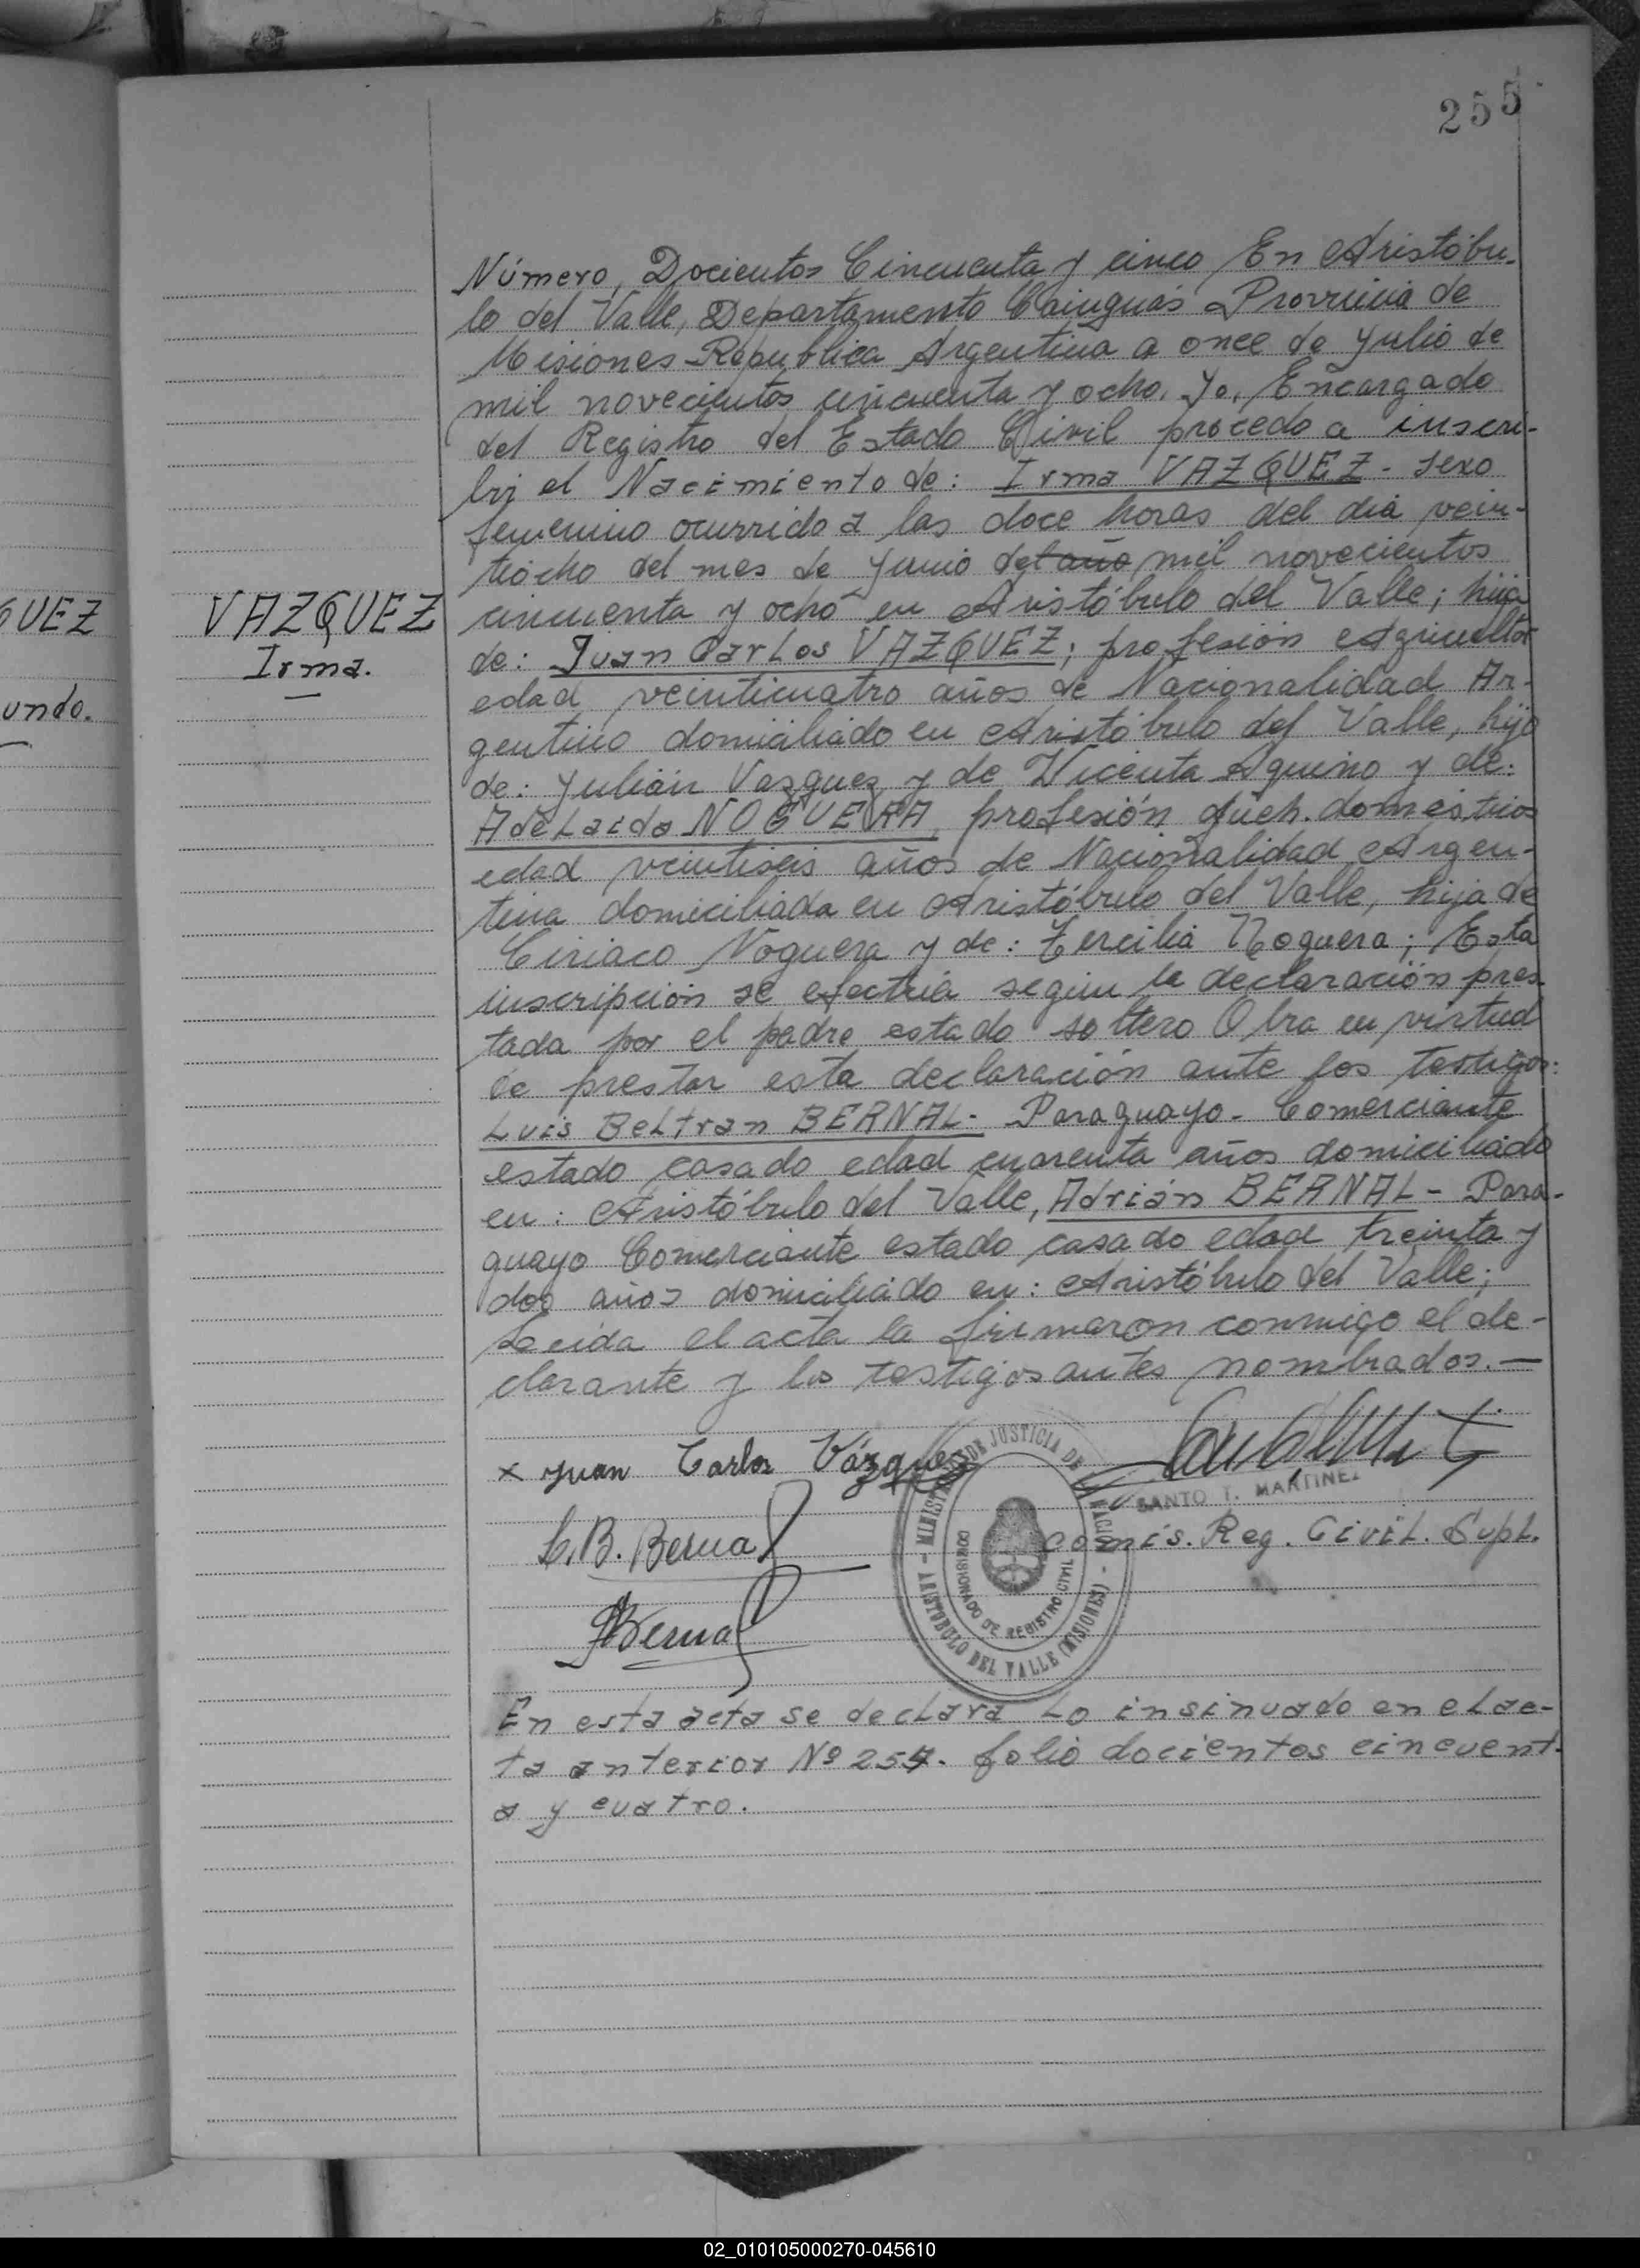 255
Número, Docientos Cincuenta y cinco, En Aristóbu-
lo del Valle, Departamento Cainguás Provincia de
Misiones Republica Argentina a once de Julio de
mil novecientos cincuenta y ocho. Yo, Encargado
del Registro del Estado Civil procedo a inscri-
bir el Nacimiento de: Irma VAZQUEZ - sexo
femenino ocurrido a las doce horas del día vein-
tiocho del mes de Junio del año mil novecientos
cincuenta y ocho en Aristóbulo del Valle; hija
de: Juan Carlos VAZQUEZ; profesión Agricultor
edad veinticuatro años de Nacionalidad Ar-
gentino domiciliado en Aristóbulo del Valle, hijo
de: Julián Vazquez y de Vicenta Aquino y de:
Adelaida NOGUERA, profesión queh. domésticos
edad veintiseis años de Nacionalidad Argen-
tina domiciliada en Aristóbulo del Valle, hija de
Ciriaco Noguera y de: Zercilia Noguera; Esta
inscripción se efectúa según la declaración pres-
tada por el padre estado soltero Obra en virtud
de prestar esta declaración ante los testigos:
Luis Beltran BERNAL - Paraguayo - Comerciante
estado casado edad cuarenta años domiciliado
en: Aristóbulo del Valle, Adrián BERNAL - Para-
guayo Comerciante estado casado edad treinta y
dos años domiciliado en: Aristóbulo del Valle;
Leida el acta la firmaron conmigo el de-
clarante y los testigos antes nombrados. —
VAZQUEZ
Irma.
QUEZ
undo.
x Juan Carlos Vázquez
L. B. Bernal
ABernal
MINISTERIO DE JUSTICIA DE LA NACION - ARISTOBULO DEL VALLE (MISIONES) -
COMISIONADO DE REGISTRO CIVIL
SANTO T. MARTINEZ
Comis. Reg. Civil. Supl.
En esta acta se declara lo insinuado en el ac-
ta anterior Nº 254. folio docientos cincuent-
a y cuatro.
02_010105000270-045610